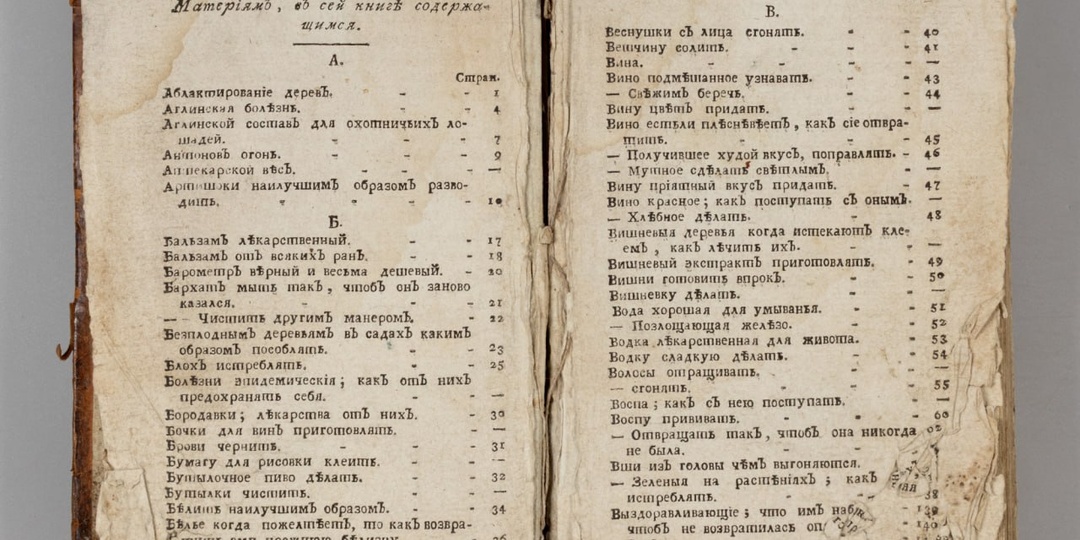 Матеріямъ, въ сей книгѣ содержа-
щимся.
А.
Стран.
Аблактированіе деревъ. - - 1
Аглинская болѣзнь. - - 4
Аглинской составъ для охотничьихъ ло-
шадей. - - - 7
Антоновъ огонь. - - - 9
Аптекарской вѣсъ. - - —
Артишоки наилучшимъ образомъ разво-
дить. - - - - 10
Б.
Бальзамъ лѣкарственный. - - 17
Бальзамъ отъ всякихъ ранъ. - - 18
Барометръ вѣрный и весьма дешевый. - 20
Бархатъ мыть такъ, чтобъ онъ заново
казался. - - - 21
— — Чистить другимъ манеромъ. - 22
Безплоднымъ деревьямъ въ садахъ какимъ
образомъ пособлять. - - 23
Блохъ истреблять. - - 25
Болѣзни эпидемическія; какъ отъ нихъ
предохранять себя. - - —
Бородавки; лѣкарства отъ нихъ. - 30
Бочки для винъ приготовлять. - —
Брови чернить. - - - 31
Бумагу для рисовки клеить. - —
Бутылочное пиво дѣлать. - - 32
Бутылки чистить. - - —
Бѣлить наилучшимъ образомъ. - 34
Бѣлье когда пожелтѣетъ, то какъ возвра-
В.
Веснушки съ лица сгонять. - - 40
Ветчину солить. - - - 41
Вина. - - - - —
Вино подмѣшанное узнавать. - 43
— Свѣжимъ беречь. - - 44
Вину цвѣтъ придать. - - —
Вино естьли плѣснѣвѣетъ, какъ сіе отвра-
тить. - - - 45
— Получившее худой вкусъ, поправлять. - 46
— Мутное сдѣлать свѣтлымъ. - —
Вину пріятный вкусъ придать. - 47
Вино красное; какъ поступать съ онымъ. —
— Хлѣбное дѣлать. - - 48
Вишневыя деревья когда истекаютъ кле-
емъ, какъ лѣчить ихъ. - - —
Вишневый экстрактъ приготовлять. - 49
Вишни готовить впрокъ. - - 50
Вишневку дѣлать. - - —
Вода хорошая для умыванья. - 51
— Позлощающая желѣзо. - - 52
Водка лѣкарственная для живота. - 53
Водку сладкую дѣлать. - - 54
Волосы отращивать. - - —
— сгонять. - - - 55
Воспа; какъ съ нею поступать. - —
Воспу прививать. - - - 60
— Отвращать такъ, чтобъ она никогда
не была.
Вши изъ головы чѣмъ выгоняются.
— Зеленыя на растѣніяхъ; какъ
истреблять. -
Выздоравливающіе; что имъ
чтобъ не возвратилась